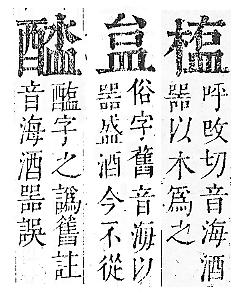 呼改切音海酒
噐以木爲之
俗字舊音海以
噐盛酒今不從
醢字之譌舊註
音海酒噐誤